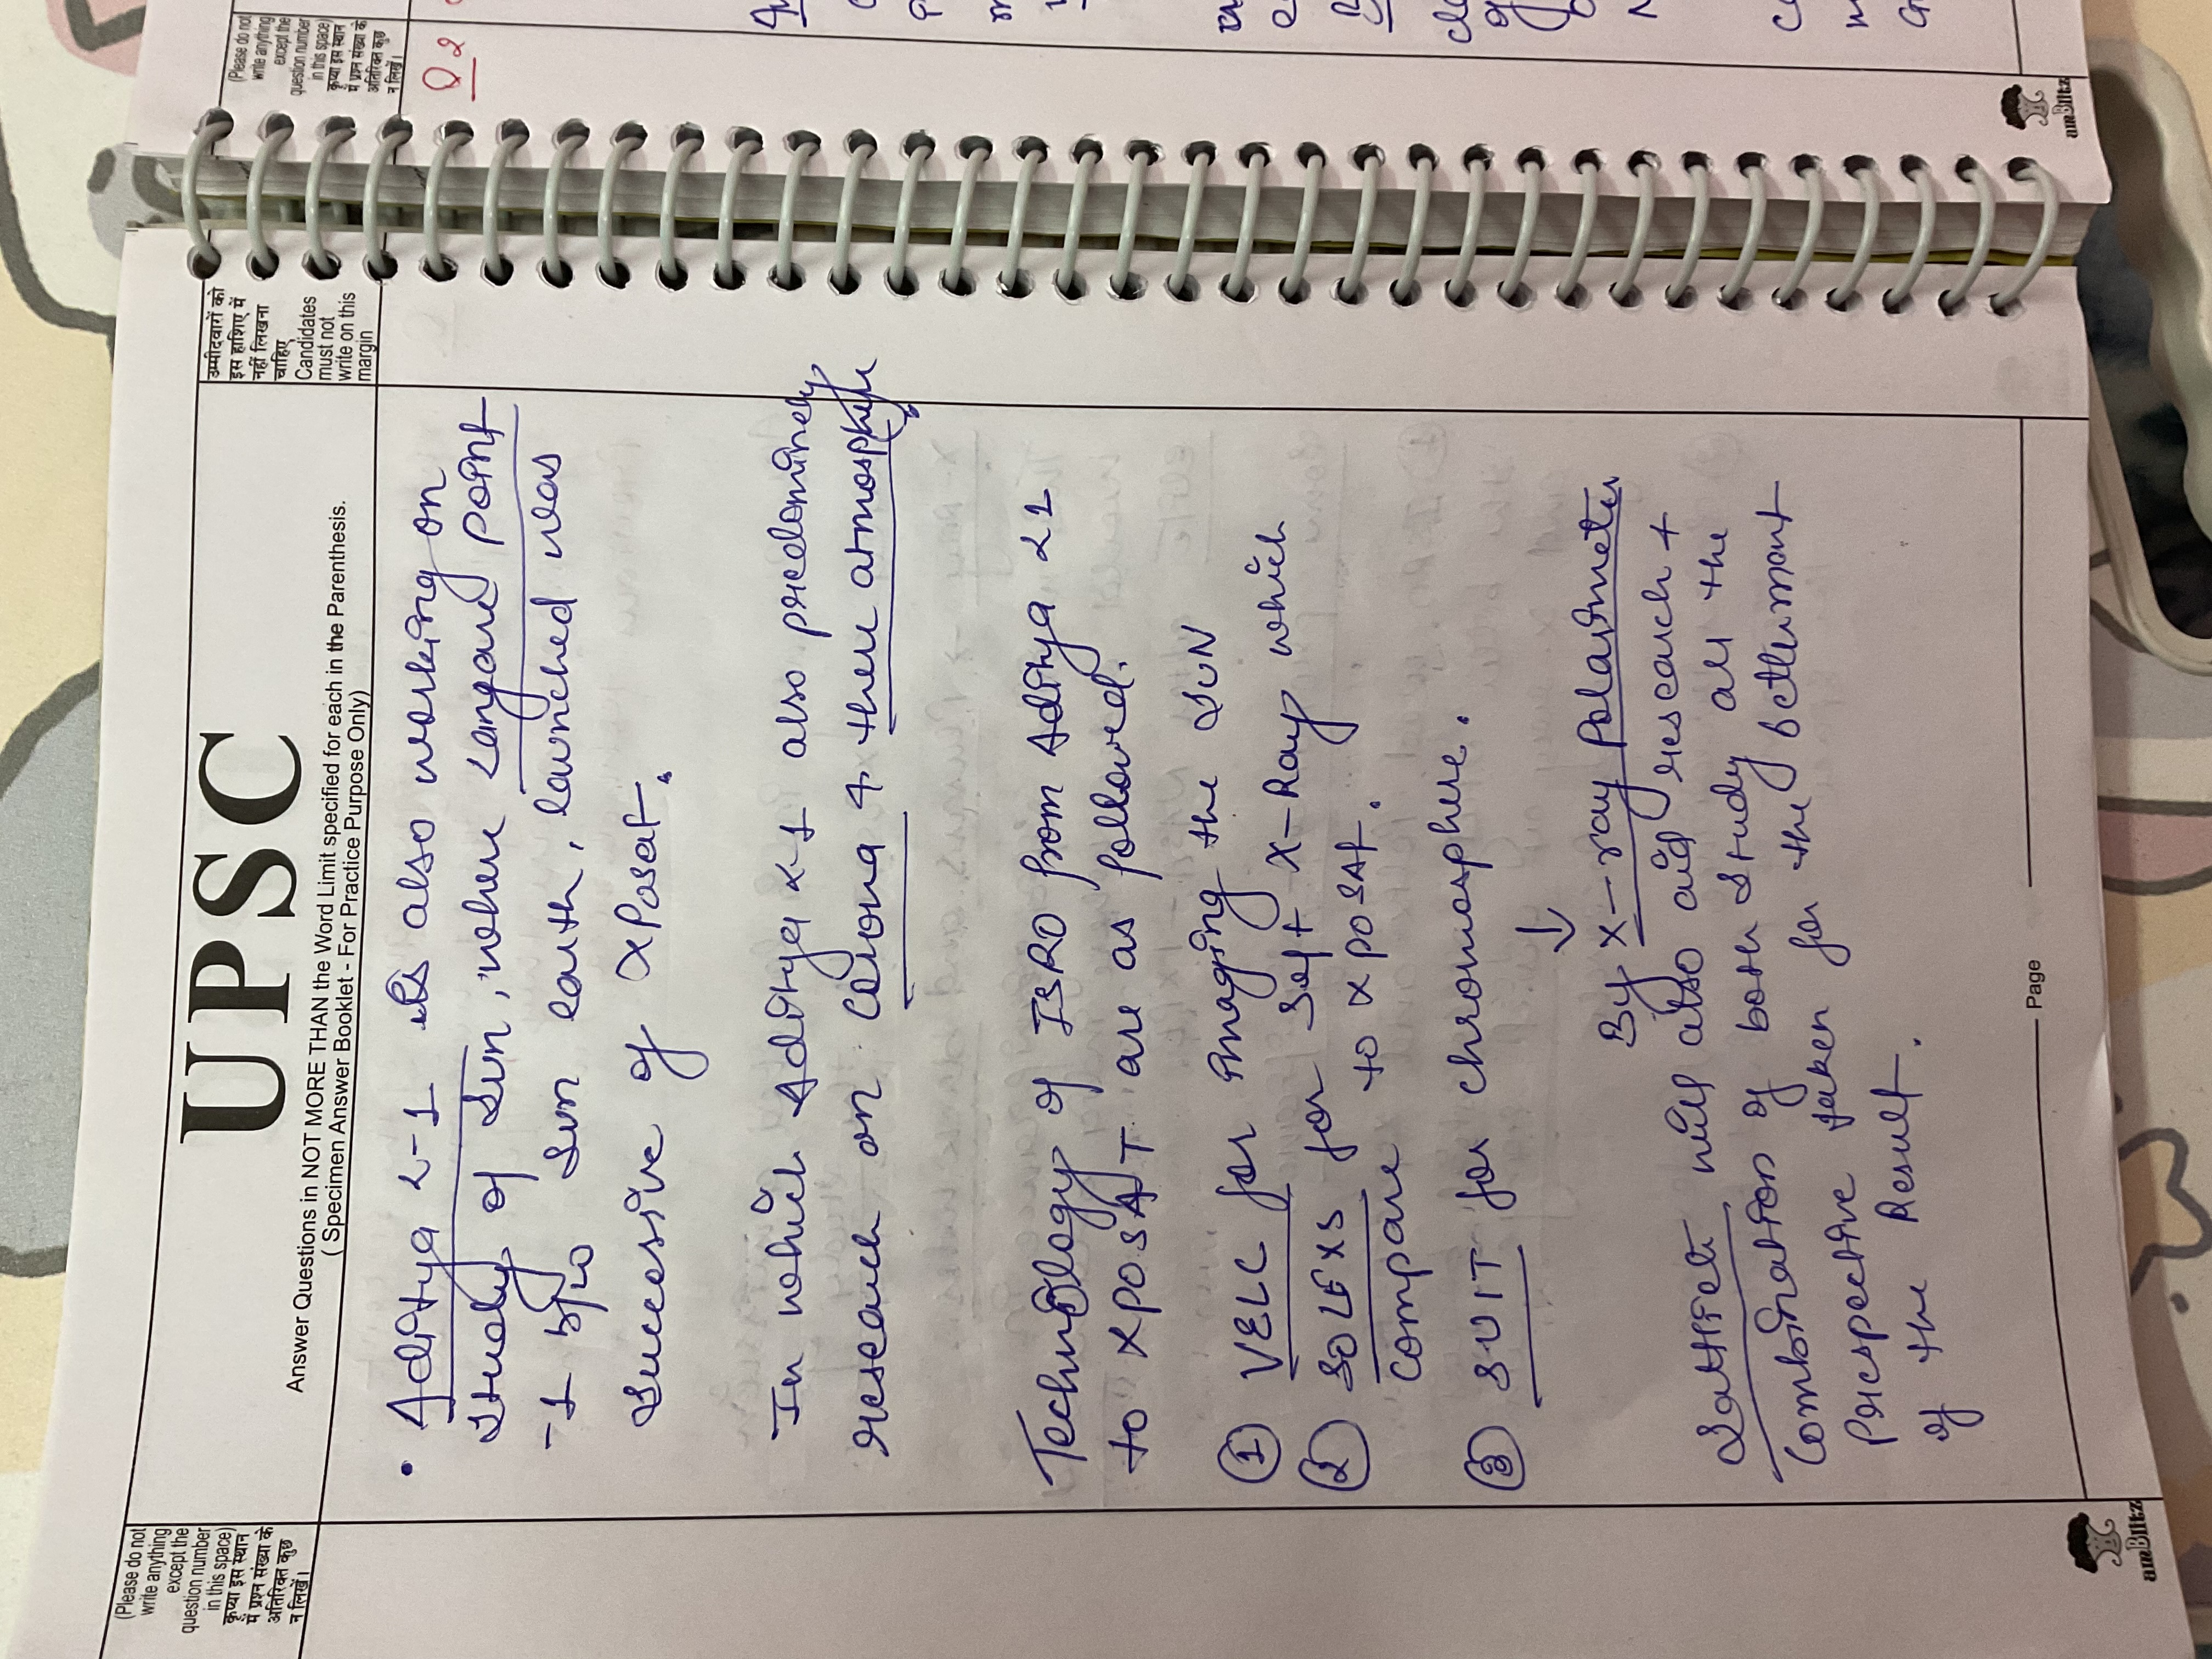 (Please do not
write anything
except the
question number
in this space)
कृप्या इस स्थान
में प्रश्न संख्या के
अतिरिक्त कुछ
न लिखें।
UPSC
Answer Questions in NOT MORE THAN the Word Limit specified for each in the Parenthesis.
( Specimen Answer Booklet - For Practice Purpose Only)
उम्मीदवारों को
इस हाशिए में
नहीं लिखना
चाहिए
Candidates
must not
write on this
margin
• Aditya L-1 is also working on
study of Sun, where Langare point
-1 b/w Sun earth, launched was
Successive of XPosat.
In which Aditya L1 also predominely
research on Corona & there atmosphere
Technology of ISRO from Aditya L1
to XPOSAT are as followed.
① VELC for imaging the SUN
② SOLEXS for Soft X-Ray which
compare to XPOSAT.
③ SUIT for chromosphere.
↓
By X-ray Polarimeter
Satteliete will also aid research +
Combination of both study all the
Prespective taken for the betterment
of the Result.
Page
airBlitz
(Please do not
write anything
except the
question number
in this space)
कृप्या इस स्थान
में प्रश्न संख्या के
अतिरिक्त कुछ
न लिखें।
Q2
airBlitz